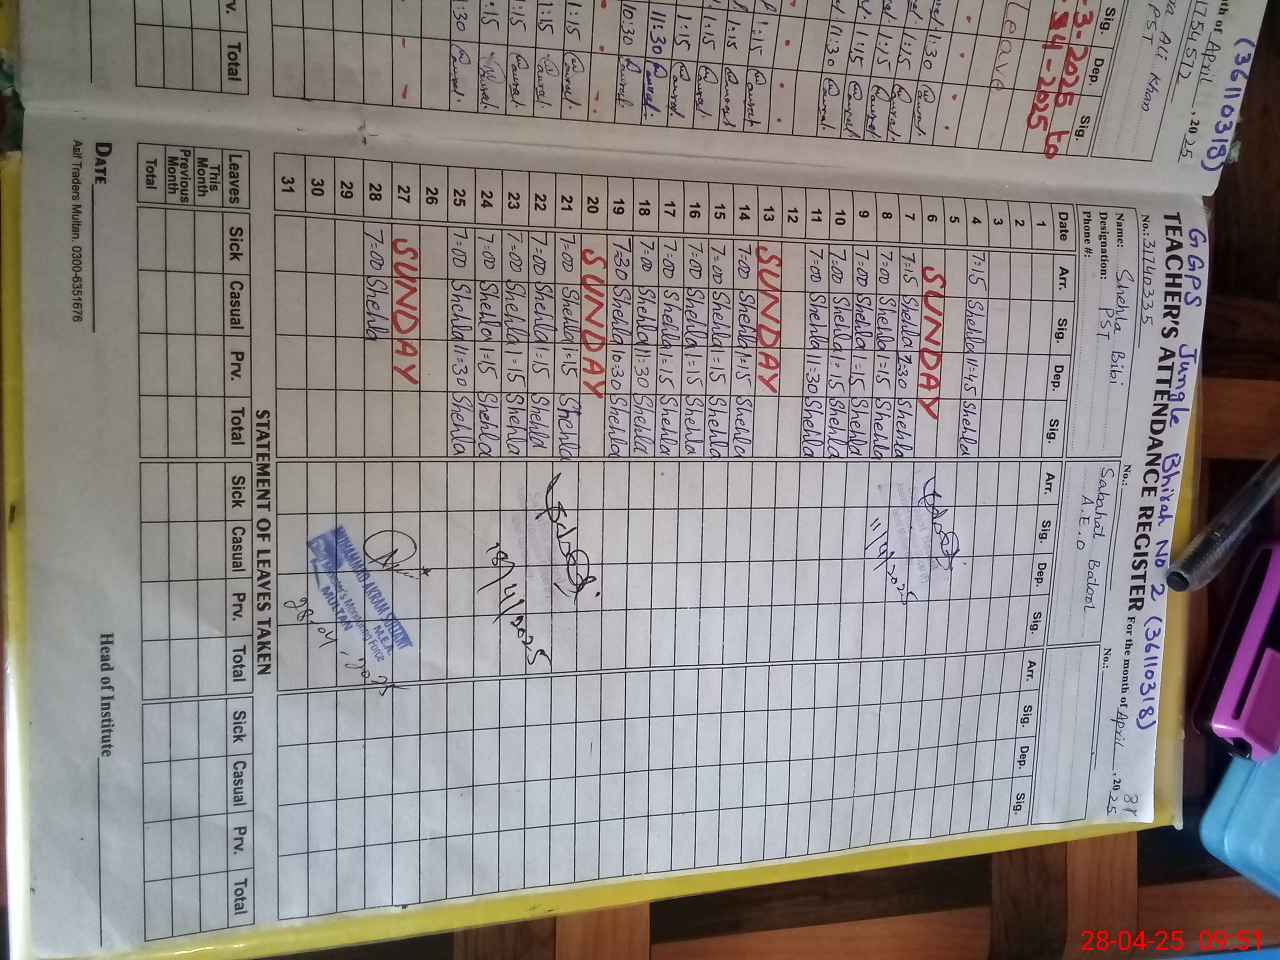 (36110318)
th of April , 2025
1754572
Ali Khan
PST
Sig. Dep. Sig.
3-2025 to
4-2025
Leave
1:30 Qaural.
1:15 Qaural.
1:15 Qaural.
1:15 Qaural.
11:30 Qaural.
1:15 Qaural
1:15 Qaural
1:15 Qaural
1:15 Qaural
11:30 Qaural
10:30 Qaural
1:15 Qaural
1:15 Qaural
1:15 Qaural
1:15
1:30 Qaural.
rv. Total
GGPS Jungle Bhirah No 2 (36110318)
TEACHER'S ATTENDANCE REGISTER For the month of April , 2025
No.: 31740335 No.: No.:
Name: Shehla Bibi Sabahat Batool
Designation: PST A.E.O
Phone #:
Date Arr. Sig. Dep. Sig. Arr. Sig. Dep. Sig. Arr. Sig. Dep. Sig.
1
2
3
4 7=15 Shehla 11=45 Shehla
5
6 SUNDAY
7 7=15 Shehla 7=30 Shehla
8 7=00 Shehla 1=15 Shehla
9 7=00 Shehla 1=15 Shehla 11/4/2025
10 7=00 Shehla 1=15 Shehla
11 7=00 Shehla 11=30 Shehla
12
13 SUNDAY
14 7=00 Shehla 1=15 Shehla
15 7=00 Shehla 1=15 Shehla
16 7=00 Shehla 1=15 Shehla
17 7=00 Shehla 1=15 Shehla
18 7=00 Shehla 11=30 Shehla
19 7=30 Shehla 10=30 Shehla
20 SUNDAY
21 7=00 Shehla 1=15 Shehla
22 7=00 Shehla 1=15 Shehla
23 7=00 Shehla 1=15 Shehla 18/4/2025
24 7=00 Shehla 1=15 Shehla
25 7=00 Shehla 11=30 Shehla
26
27 SUNDAY
28 7=00 Shehla
29
30
31
MUHAMMAD AKRAM
M.E.A
Monitoring Force
MULTAN
28.04.2025
STATEMENT OF LEAVES TAKEN
Leaves Sick Casual Prv. Total Sick Casual Prv. Total Sick Casual Prv. Total
This Month
Previous Month
Total
DATE Head of Institute
Asif Traders Multan. 0300-6351676
28-04-25 09:51